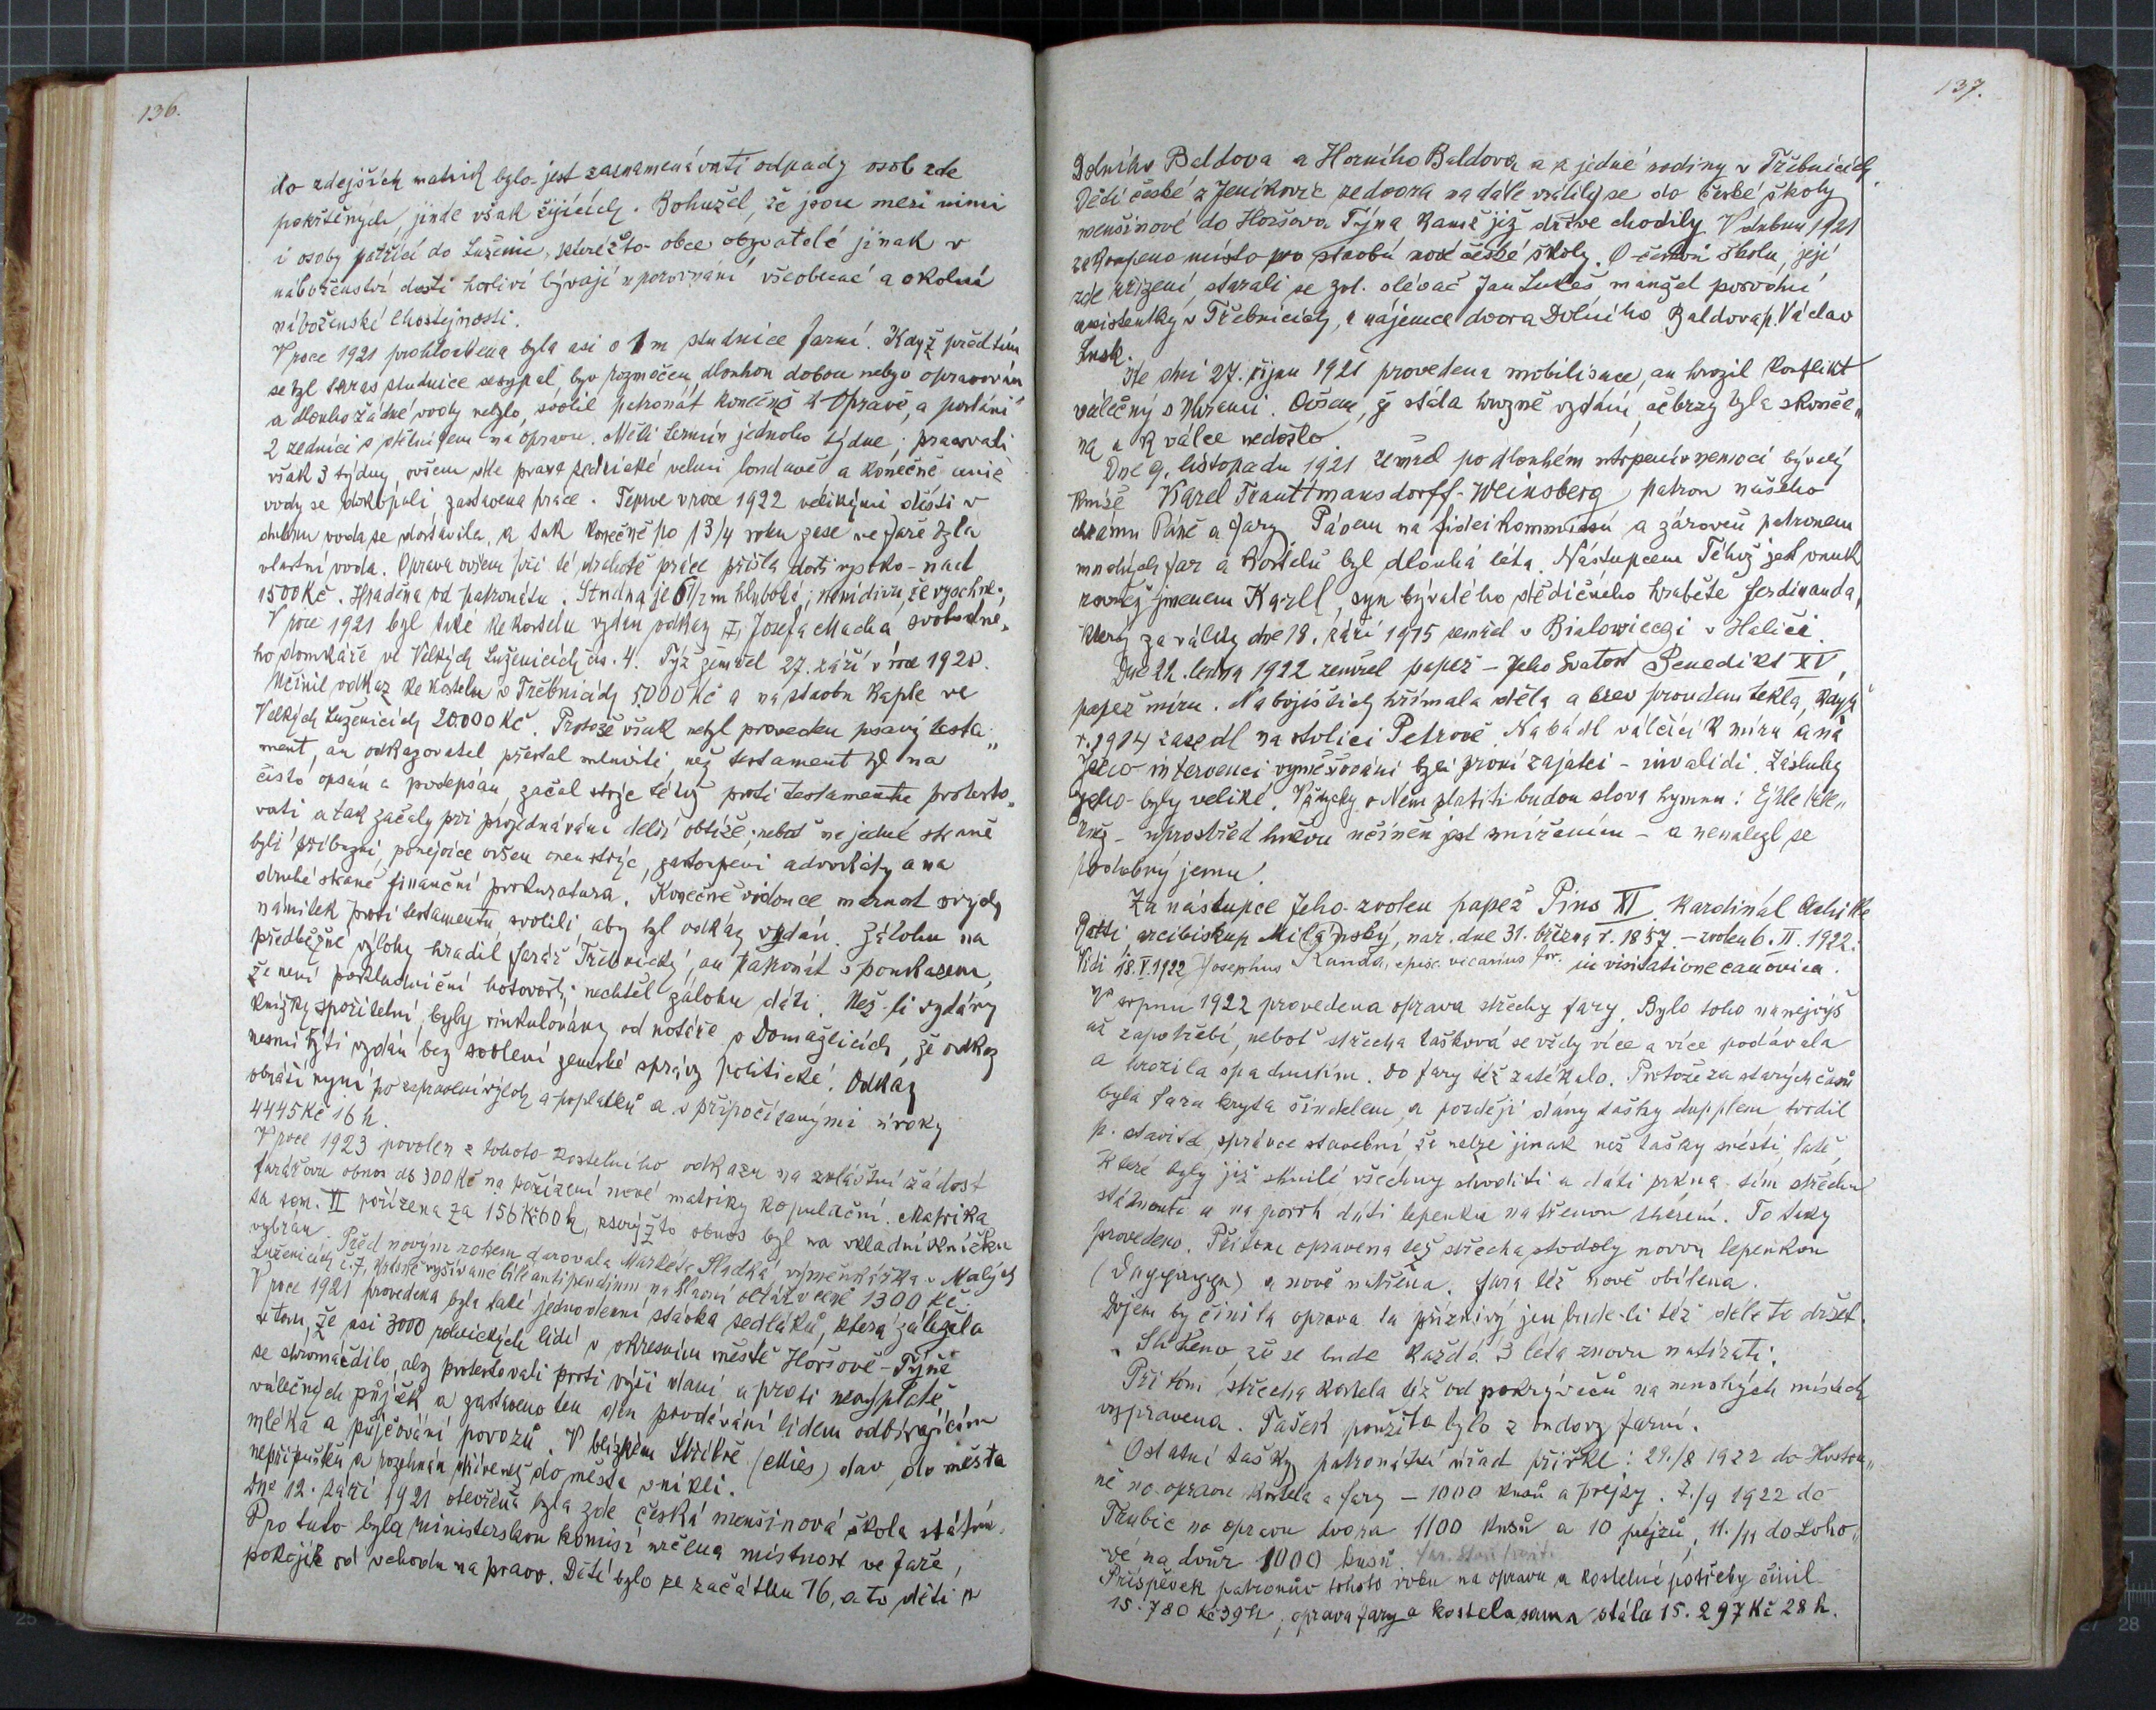 136.
do zdejších matrik bylo jest zaznamenávati odpady osob zde
pokřtěných, jinde však žijících. Bohužel, že jsou mezi nimi
i osoby patřící do Luženic, kteréžto obce obyvatelé jinak v
náboženství dosti horliví bývají v porovnání všeobecné a okolní
náboženské lhostejnosti.
V roce 1921 prohloubena byla asi o 1 m studnice farní. Když předtím
se byl taras studnice sesypal, byv rozmočen, dlouhou dobou nebyv opravován
a dlouho žádné vody nebylo, svolil patronát konečně k opravě, a posláni
2 zedníci s pomocníkem na opravu. Měli termín jednoho týdne; pracovali
však 3 týdny, ovšem dle práce zednické velmi loudavě a konečně, aniž
vody se dokopali, zastavena práce. Teprve v roce 1922 velikými dešti v
dubnu voda se dostavila, a tak konečně po 1 3/4 roku zase ve faře byla
vlastní voda. Oprava ovšem při té drahotě práce přišla dosti vysoko - nad
1500 Kč. Hrazena od patronátu. Studna je 6 1/2 m hluboká; není divu, že vyschne.
V roce 1921 byl také ke kostelu vydán odkaz † Josefa Macha, svobodné„
ho domkáře ve Velkých Luženicích čís. 4. Týž zemřel 27. září v roce 1920.
Učinil odkaz ke kostelu v Třebnicích 5.000 Kč a na stavbu kaple ve
Velkých Luženicích 20.000 Kč. Protože však nebyl proveden psaný testa„
ment, an odkazovatel přestal mluviti, než testament byl na
čisto opsán a podepsán, začal strýc téhož proti testamentu protesto„
vati a tak začaly při projednávání delší obtíže; neboť na jedné straně
byli příbuzní, ponejvíce ovšem onen strýc, zastoupeni advokáty a na
druhé straně finanční prokuratura. Konečně vidouce marnost svých
námitek proti testamentu svolili, aby byl odkaz vydán. Zálohu na
předběžné výlohy hradil farář Třebnický, an patronát s poukazem,
že není pokladniční hotovosti, nechtěl zálohu dáti. Než-li vydány
knížky spořitelní, byly vinkulovány od notáře v Domažlicích, že odkaz
nesmí býti vydán bez svolení zemské správy politické. Odkaz
obnáší nyní po zapravení výloh a poplatků a s připočítanými úroky
4445 Kč 16 h.
V roce 1923 povolen z tohoto kostelního odkazu na zvláštní žádost
farářovu obnos do 300 Kč na pořízení nové matriky kopulační. Matrika
ta tom. II pořízena za 156 Kč 60 h, kterýžto obnos byl na vkladní knížku
vybrán. Před novým rokem darovala Markéta Sladká, výměnkářka v Malých
Luženicích č. 7, krásné vyšívané bílé antipendium na hlavní oltář v ceně 1300 Kč.
V roce 1921 provedena byla také jednodenní stávka sedláků, která záležela
v tom, že asi 3000 rolnických lidí v okresním městě Horšově-Týně
se shromáždilo, aby protestovali proti výši daní a proti nevýplatě
válečných půjček a zastaveno ten den prodávání lidem odbírajícím
mléka a půjčování povozů. V blízkém Stříbře (Mies) dav do města
nepřipuštěn a rozehnán dříve než do města vnikli.
Dne 12. září 1921 otevřena byla zde česká menšinová škola státní.
Pro tuto byla ministerskou komisí určena místnost ve faře,
pokojík od vchodu na pravo. Dětí bylo ze začátku 16, a to děti z
137.
Dolního Baldova a Horního Baldova a z jedné rodiny v Třebnicích.
Děti české z Jeníkovic ze dvora na dále vrátily se do české školy
menšinové do Horšova Týna kamž již dříve chodily. V dubnu 1921
zakoupeno místo pro stavbu nové české školy. O českou školu, její
zde zřízení, starali se zvl. slévač Jan Lukeš manžel porodní
asistentky v Třebnicích, a nájemce dvora Dolního Baldova p. Václav
Lusk.
Ke dni 27. října 1921 provedena mobilisace, an hrozil konflikt
válečný s Uhrami. Ovšem, že stála hrozné vydání, ač brzy byla skonče„
na a k válce nedošlo.
Dne 9. listopadu 1921 zemřel po dlouhém utrpení v nemoci bývalý
kníže Karel Trauttmansdorff-Weinsberg, patron našeho
chrámu Páně a fary. Pánem na fideikommissu a zároveň patronem
mnohých far a kostelů byl dlouhá léta. Nástupcem Téhož jest vnuk
rovněž jmenem Karel, syn bývalého dědičného hraběte Ferdinanda,
který za války dne 18. září 1915 zemřel v Bialowiecgi v Haliči.
Dne 22. ledna 1922 zemřel papež - Jeho Svatost Benedikt XV,
papež míru. Na bojištích hřímala děla a krev proudem tekla, když
r. 1914 zasedl na stolici Petrově. Nabádl válčící k míru a na
Jeho intervenci vyměňováni byli první zajatci - invalidi. Zásluhy
Jeho byly veliké. Vždycky o Něm platiti budou slova hymnu: Ejhle kle„
kněz - uprostřed hněvu učiněn jest smířením - a nenalezl se
podobný jemu!
Za nástupce Jeho zvolen papež Pius XI. Kardinál Achille
Ratti, arcibiskup Milánský, nar. dne 31. března r. 1857 - zvolen 6. II. 1922.
Vidi 18. V. 1922 Josephus Randa, episc. vicarius for. in visitatione canonica.
V srpnu 1922 provedena oprava střechy fary. Bylo toho nanejvýš
už zapotřebí, neboť střecha tašková se vždy více a více podávala
a hrozila spadnutím. Do fary též zatékalo. Protože za starých časů
byla fara kryta šindelem, a později dány tašky dupplem, tvrdil
p. stavitel, správce stavební, že nelze jinak než tašky snésti, latě,
které byly již shnilé všechny shoditi a dáti prkna, tím střechu
stáhnouti a na povrch dáti lepenku natřenou térem. To taky
provedeno. Přitom opravena též střecha stodoly novou lepenkou
a nově natřena. Fara též nově obílena.
Dojem by činila oprava ta příznivý jen bude-li též déle to držet.
Slíbeno, že se bude každá 3 léta znovu natírati.
Při tom střecha kostela též od pokrývačů na mnohých místech
vypravena. Tašek použito bylo z budovy farní.
Ostatní tašky patronátní úřad přiřkl: 29./8 1922 do Hostou„
ně na opravu kostela a fary - 1000 kusů a prejzy. 7./9 1922 do
Trubic na opravu dvora 1100 kusů a 10 prejzů, 11./11 do Loho„
vé na dvůr 1000 kusů.
Příspěvek patronův tohoto roku na opravu a kostelné potřeby činil
15.780 Kč 39 h, oprava fary a kostela sama stála 15.297 Kč 28 h.